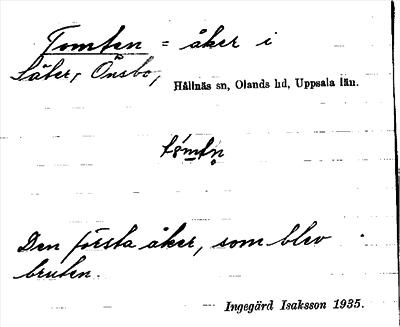 Tomten = åker i
Säter, Önsbo, Hållnäs sn, Olands hd, Uppsala län.
tómtn̥
Den första åker, som blev
bruten.
Ingegärd Isaksson 1935.